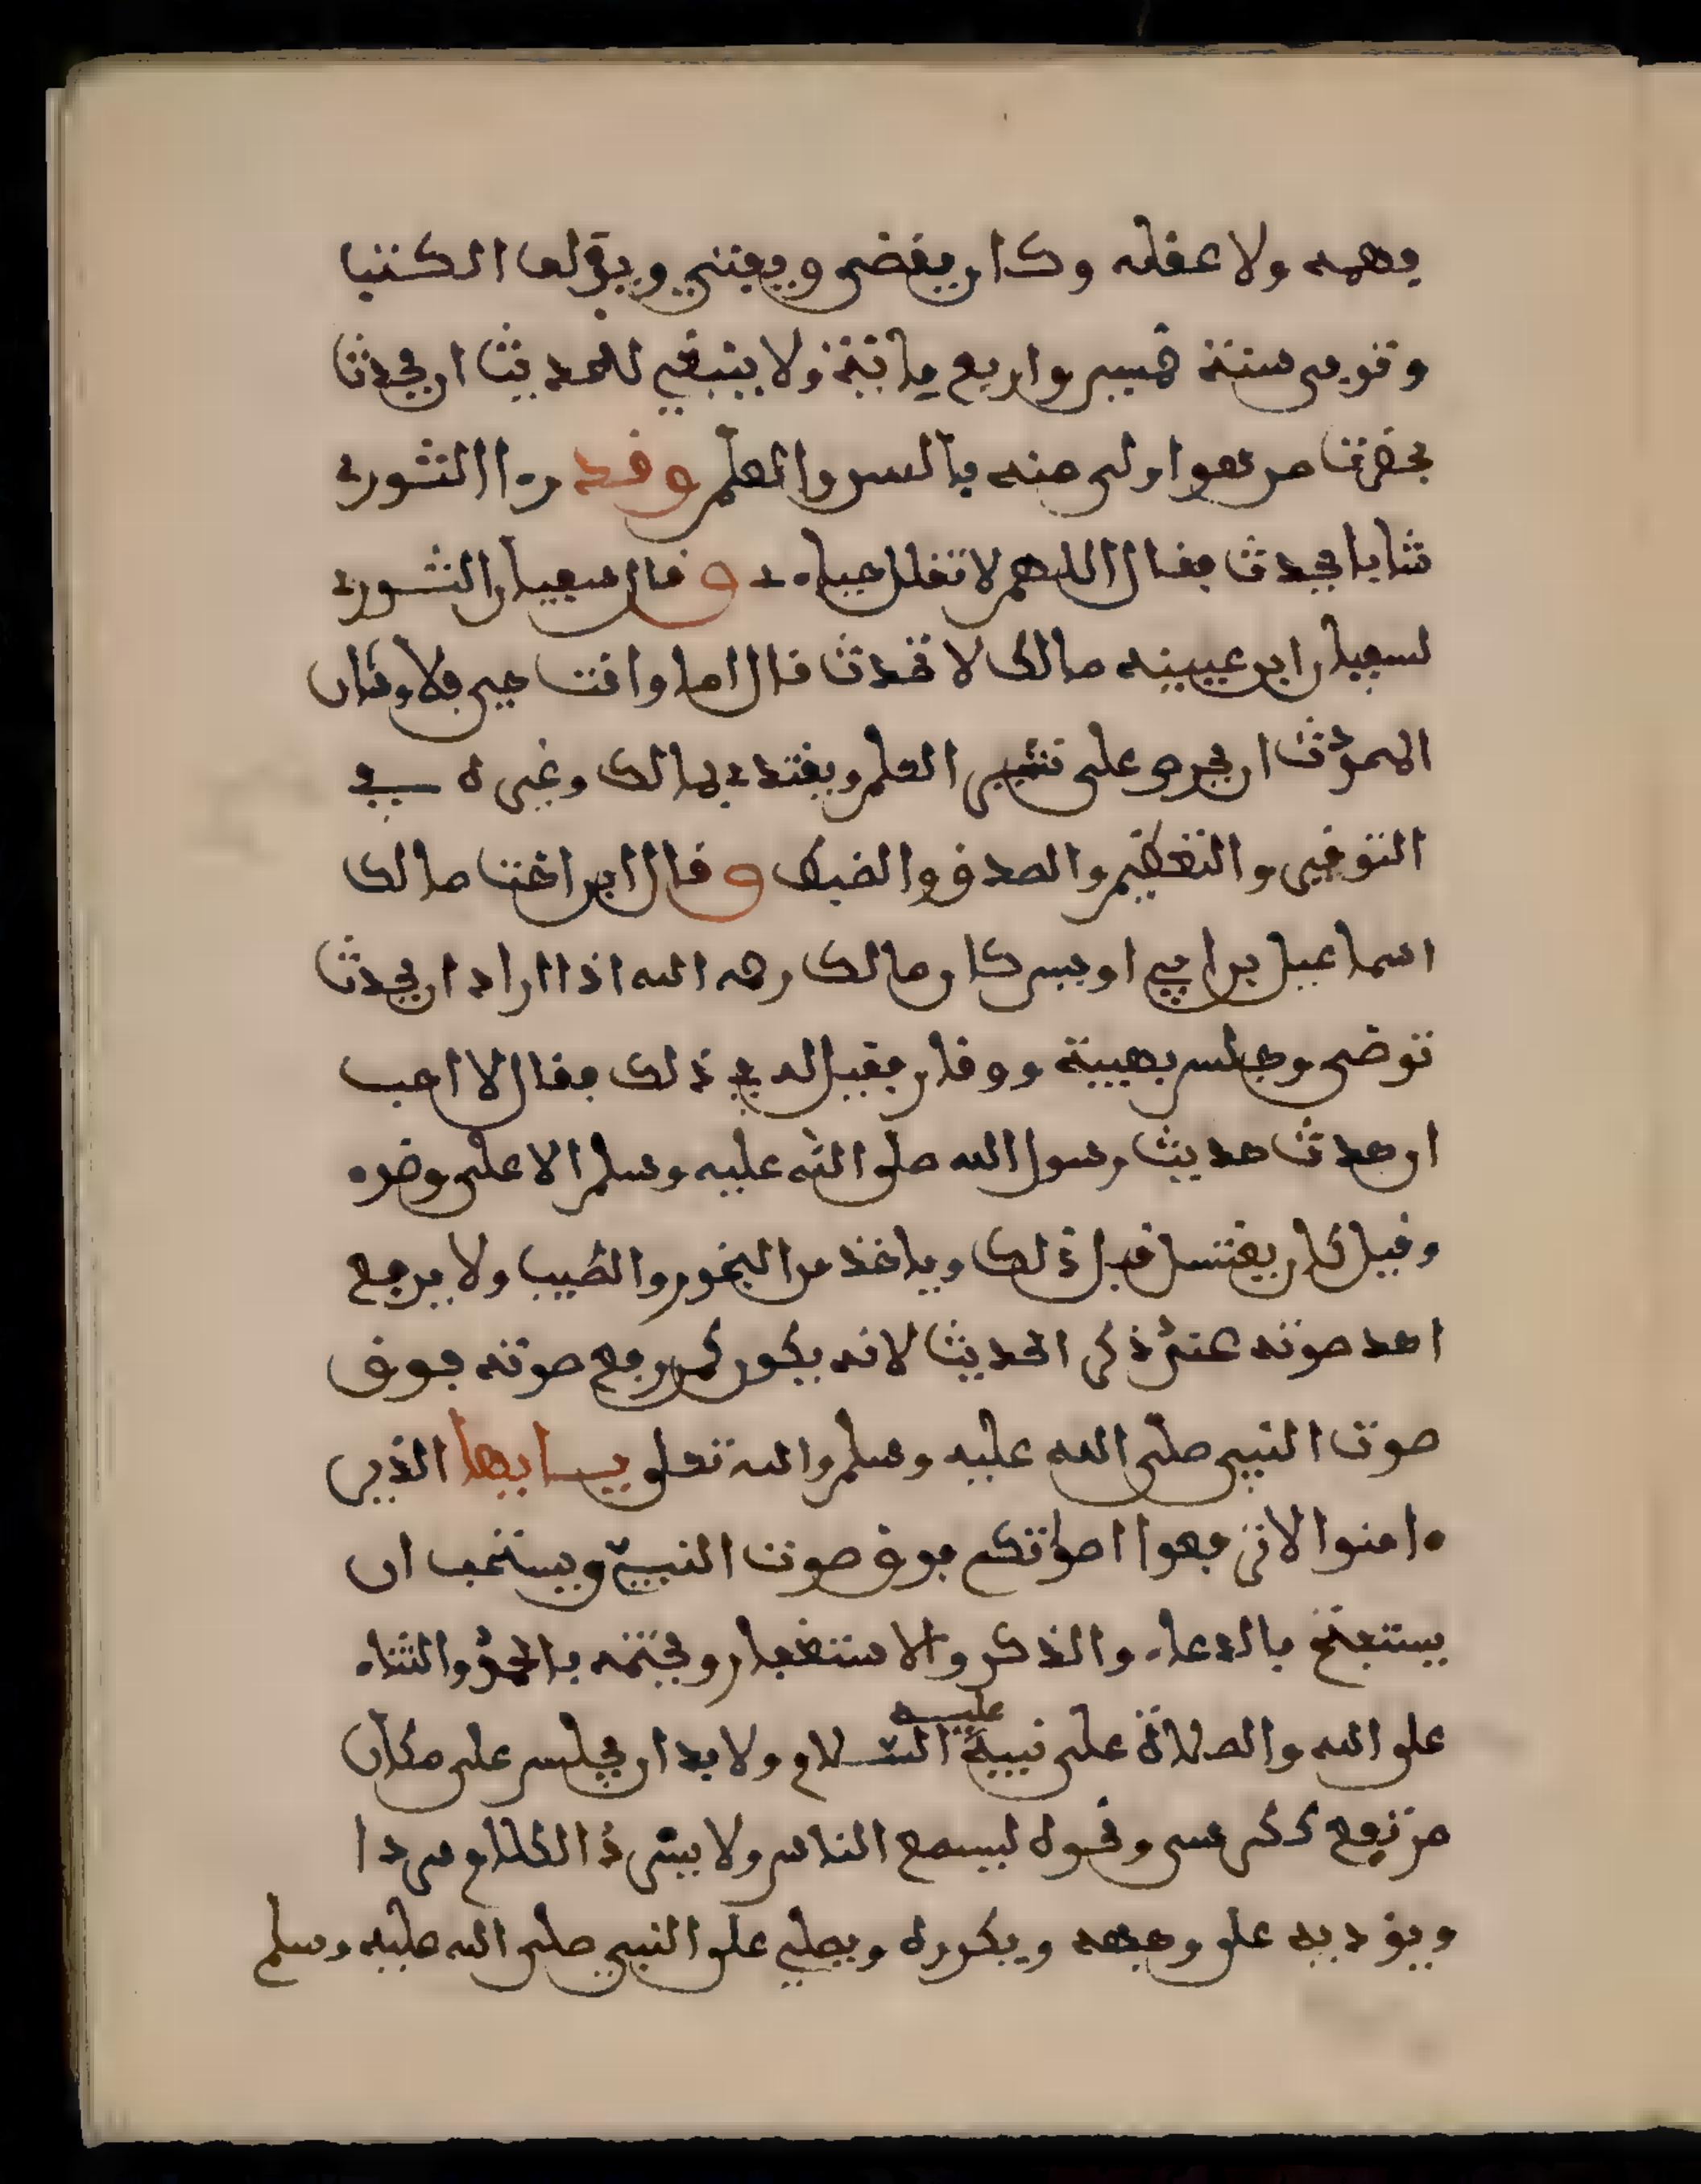 فهمه ولا عقله وكان يقضي ويفتي ويؤلف الكتب
وتوفي سنة خمسين واربع مائة ولا ينبغي للمحدث ان يحدث
بحضرة من هو اولى منه بالسن والعلم وقد رءا الثوري
شابا يحدث فقال اللهم لا تقلل حياءه وقال سفيان الثوري
لسفيان ابن عيينه مالك لا تحدث قال اما وانت حي فلا وشان
المحدث ان يحرص على نشر العلم ويقتدي بمالك وغيره في
التوقير والتعظيم والصدق والضبط وقال ابن اخت مالك
اسماعيل بن ابي اويس كان مالك رحمه الله اذا اراد ان يحدث
توضى وجلس بهيبة ووقار فقيل له في ذلك فقال لا احب
ان احدث حديث رسول الله صلى الله عليه وسلم الا على وضوء
وقيل كان يغتسل قبل ذلك وياخذ من البخور والطيب ولا يرفع
احد صوته عند ذكر الحديث لانه يكون كمن رفع صوته فوق
صوت النبي صلى الله عليه وسلم والله تعلى يايها الذين
ءامنوا لا ترفعوا اصواتكم فوق صوت النبيء ويستحب ان
يستفتح بالدعاء والذكر والاستغفار ويختمه بالحمد والثناء
على الله والصلاة على نبيه عليه السلام ولا بد ان يجلس على مكان
مرتفع ككرسي ونحوه ليسمع الناس ولا يسرد الكلام سردا
ويؤديه على وجهه ويكرره ويصلي على النبي صلى الله عليه وسلم